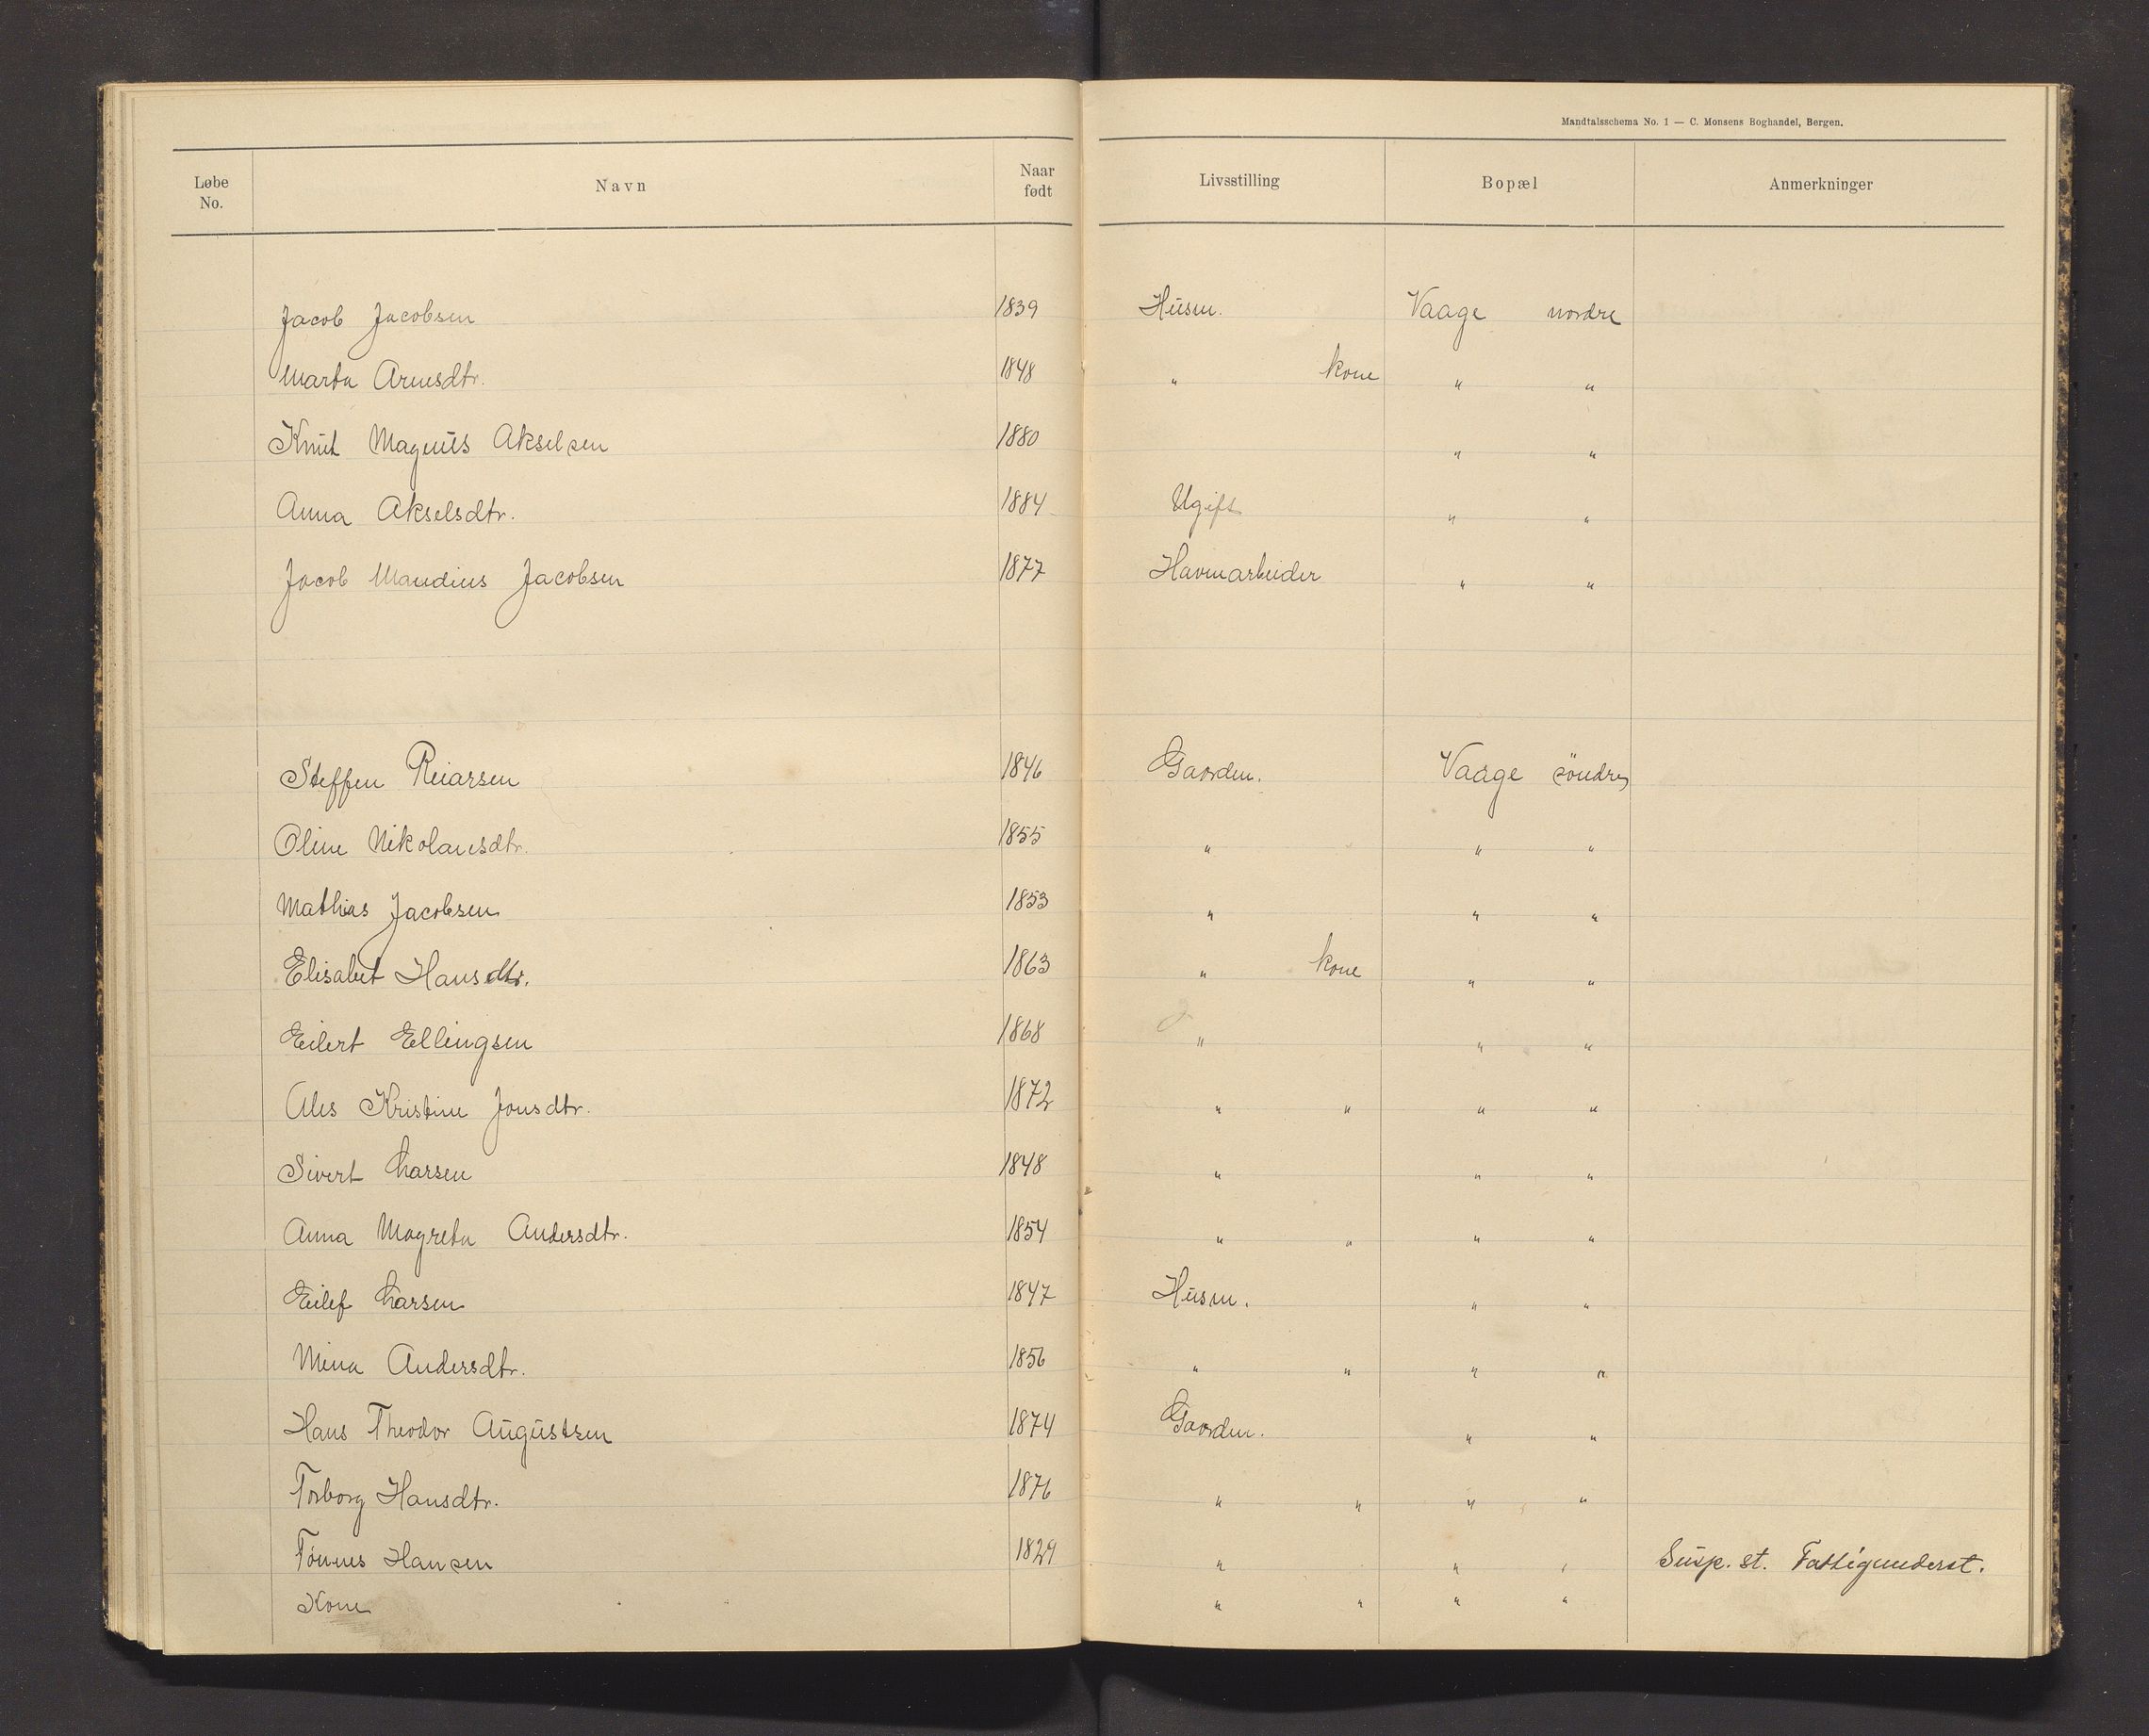 Mandtalsschema No. 1 — C. Monsens Boghandel, Bergen.
Løbe No. Navn Naar født Livsstilling Bopæl Anmerkninger
Jacob Jacobsen 1839 Husm. Vaage nordre
Marta Arnesdtr. 1848 " kone " "
Knut Magnus Akselsen 1880 " "
Anna Akselsdtr. 1884 Ugift " "
Jacob Mandius Jacobsen 1877 Havnarbeider " "
Steffen Reiarsen 1846 Gaardm. Vaage söndre
Oline Nikolausdtr. 1855 " " "
Mathias Jacobsen 1853 " " "
Elisabet Hansdtr. 1863 " kone " "
Eilert Ellingsen 1868 " " "
Ales Kristine Jonsdtr. 1872 " " " "
Sivert Larsen 1848 " " "
Anna Magreta Andersdtr. 1854 " " " "
Eilef Larsen 1847 Husm. " "
Mina Andersdtr. 1856 " " " "
Hans Theodor Augustsen 1874 Gaardm. " "
Torborg Hansdtr. 1876 " " " "
Tönnes Hansen 1829 " " " Susp. st. Fattigunderst.
Kone " " " "